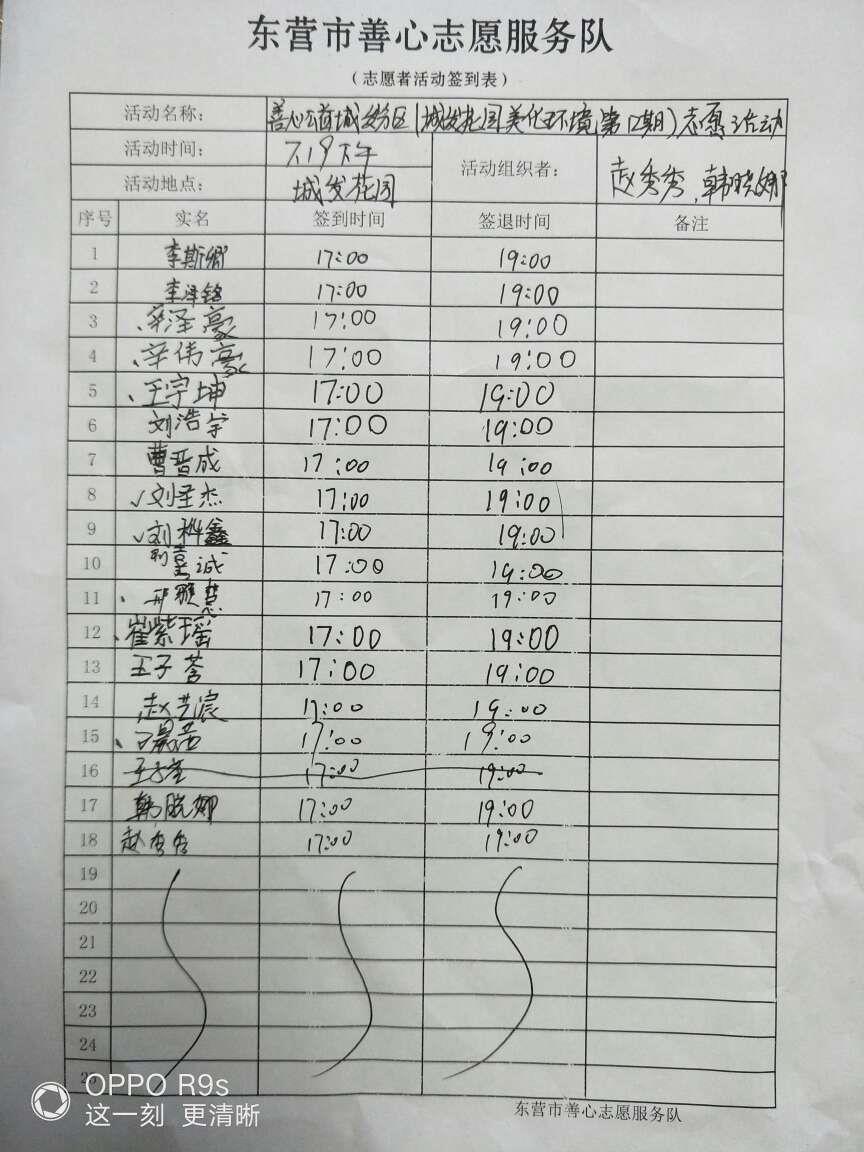 东营市善心志愿服务队
(志愿者活动签到表)
活动名称: 善心公益城发分区(城发花园美化环境第12期)志愿活动
活动时间: 7.19下午
活动组织者: 赵秀秀、韩晓娜
活动地点: 城发花园
序号 实名 签到时间 签退时间 备注
1 李斯卿 17:00 19:00
2 李泽铭 17:00 19:00
3 泽豪 17:00 19:00
4 辛伟豪 17:00 19:00
5 王宇坤 17:00 19:00
6 刘浩宇 17:00 19:00
7 曹晋成 17:00 19:00
8 刘圣杰 17:00 19:00
9 刘桦鑫 17:00 19:00
10 诚 17:00 19:00
11 17:00 19:00
12 崔紫瑶 17:00 19:00
13 王子 17:00 19:00
14 赵艺宸 17:00 19:00
15 17:00 19:00
16 17:00 19:00
17 韩晓娜 17:00 19:00
18 赵秀秀 17:00 19:00
19
20
21
22
23
24
25
东营市善心志愿服务队
OPPO R9s
这一刻 更清晰